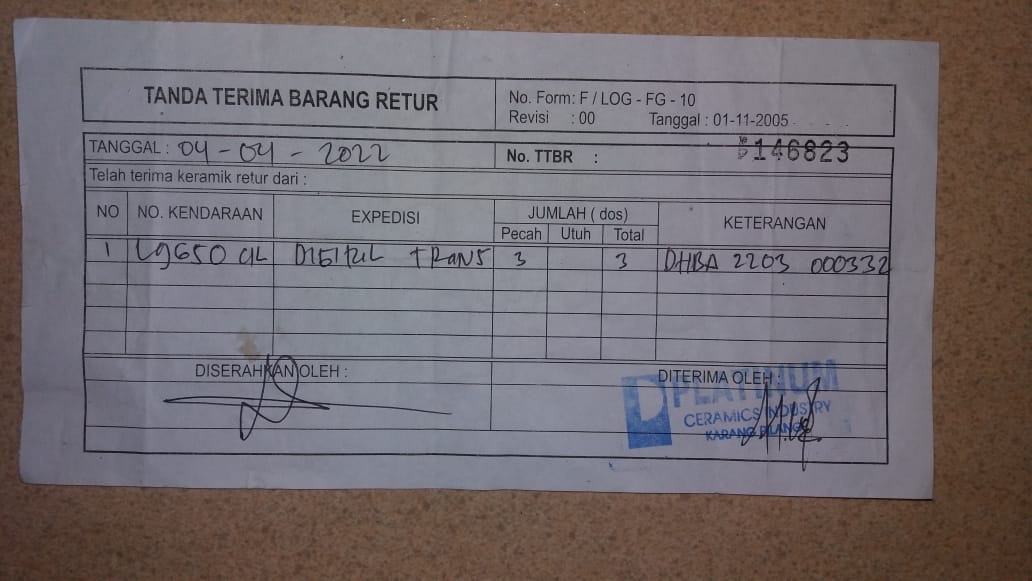 TANDA TERIMA BARANG RETUR
No. Form: F / LOG - FG - 10
Revisi : 00 Tanggal : 01-11-2005
TANGGAL : 04-04-2022
No. TTBR : № 146823
Telah terima keramik retur dari :
NO NO. KENDARAAN EXPEDISI JUMLAH ( dos) KETERANGAN
Pecah Utuh Total
1 L9650 TRANS 3 3 DHBA 2203 000332
DISERAHKAN OLEH : DITERIMA OLEH :
PLATINUM
CERAMICS INDUSTRY
KARANG PILANG